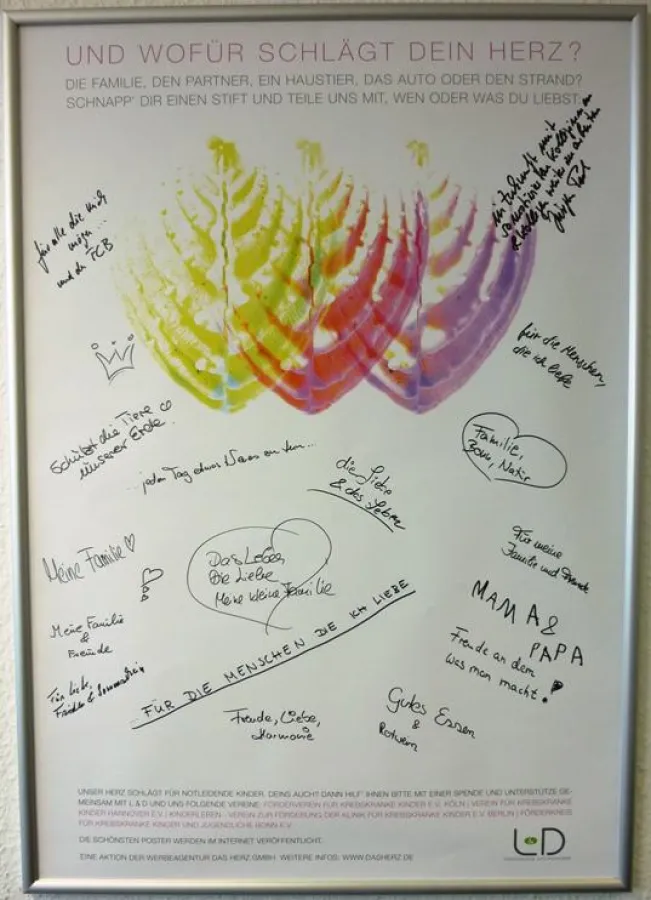 UND WOFÜR SCHLÄGT DEIN HERZ?
DIE FAMILIE, DEN PARTNER, EIN HAUSTIER, DAS AUTO ODER DEN STRAND?
SCHNAPP' DIR EINEN STIFT UND TEILE UNS MIT, WEN ODER WAS DU LIEBST:
in Zukunft mit
für alle die mich
mögen...
und da FCB
für die Menschen,
die ich liebe
Schützt die Tiere
unserer Erde.
Familie,
Natur
...jeden Tag etwas Neues zu
die Liebe
& das Leben
Meine Familie ♡
Das Leben
Die Liebe
Meine kleine Familie
Für meine
Familie und Freunde
MAMA &
PAPA
Meine Familie
&
Freunde
Freude an dem
was man macht!
FÜR DIE MENSCHEN DIE ICH LIEBE
Freude, Liebe,
Harmonie
Gutes Essen
&
Rotwein
UNSER HERZ SCHLÄGT FÜR NOTLEIDENDE KINDER. DEINS AUCH? DANN HILF' IHNEN BITTE MIT EINER SPENDE UND UNTERSTÜTZE GE-
MEINSAM MIT L & D UND UNS FOLGENDE VEREINE: FÖRDERVEREIN FÜR KREBSKRANKE KINDER E.V. KÖLN | VEREIN FÜR KREBSKRANKE
KINDER HANNOVER E.V. | KINDERLEBEN - VEREIN ZUR FÖRDERUNG DER KLINIK FÜR KREBSKRANKE KINDER E.V. BERLIN | FÖRDERKREIS
FÜR KREBSKRANKE KINDER UND JUGENDLICHE BONN E.V.
DIE SCHÖNSTEN POSTER WERDEN IM INTERNET VERÖFFENTLICHT.
EINE AKTION DER WERBEAGENTUR DAS HERZ GMBH. WEITERE INFOS: WWW.DASHERZ.DE
L&D